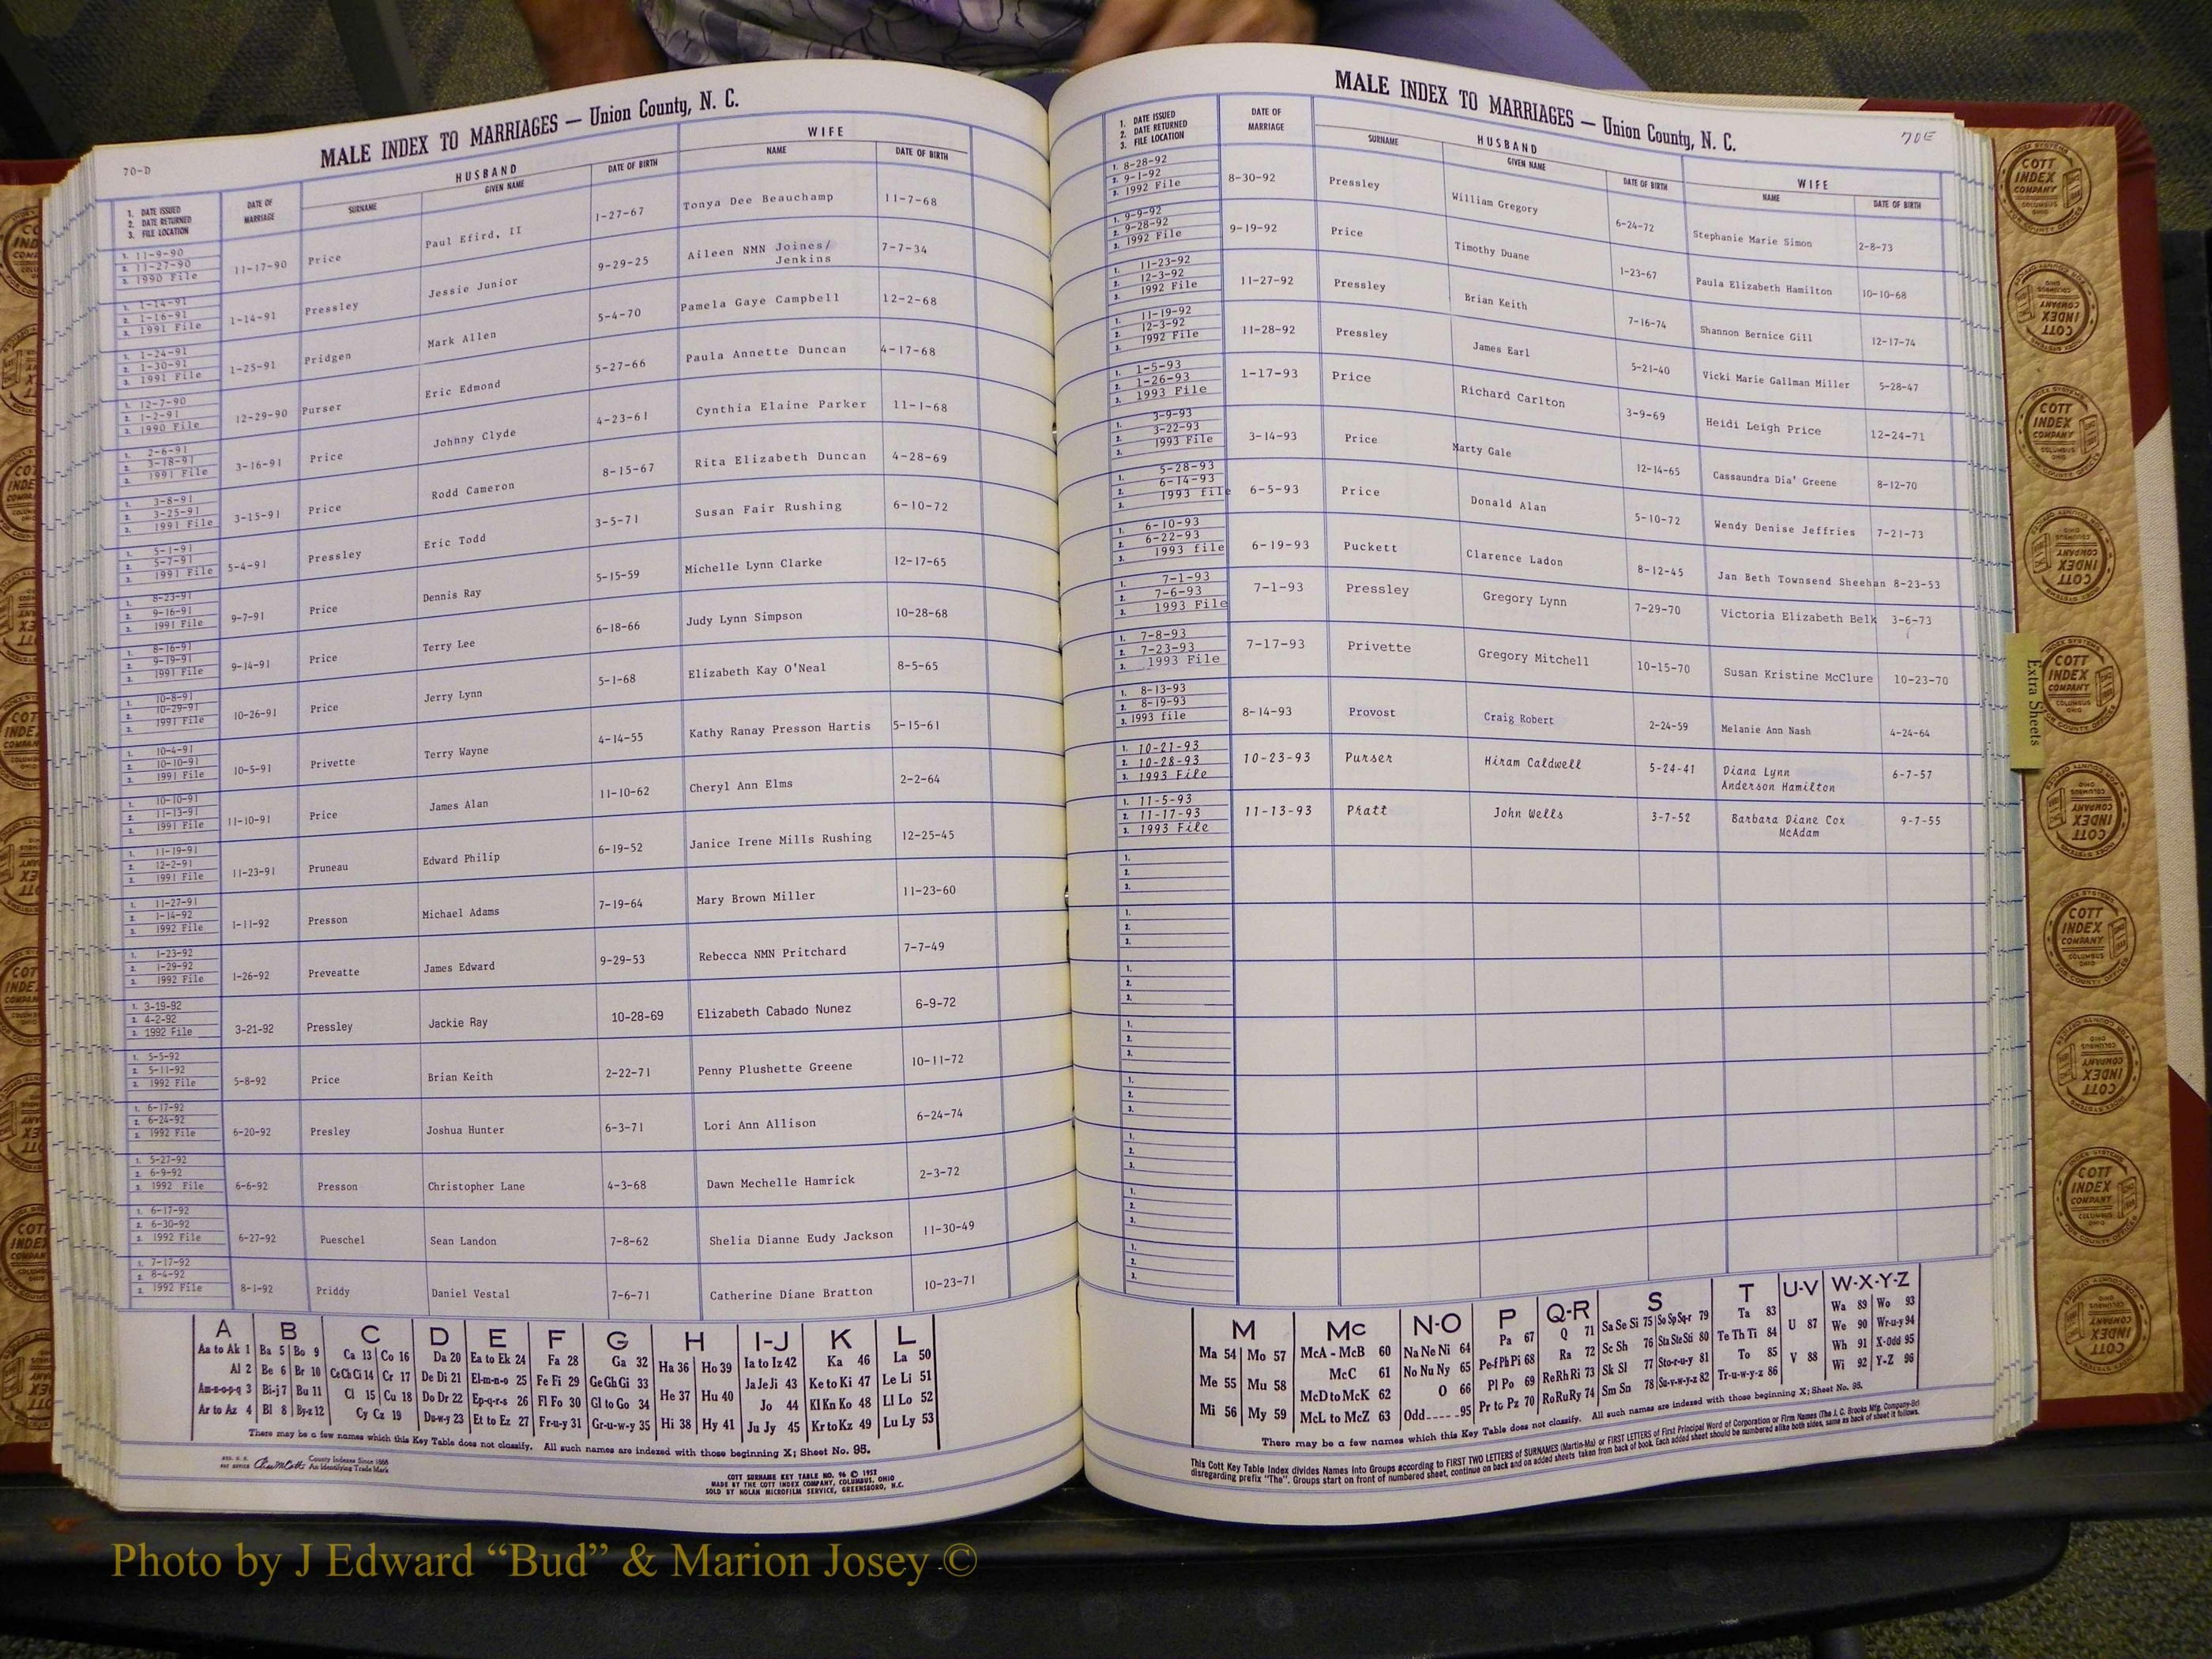 70-D
MALE INDEX TO MARRIAGES — Union County, N. C.
1. DATE ISSUED
2. DATE RETURNED
3. FILE LOCATION
DATE OF MARRIAGE
HUSBAND
SURNAME
GIVEN NAME
DATE OF BIRTH
WIFE
NAME
DATE OF BIRTH
1. 11-9-90
2. 11-27-90
3. 1990 File
11-17-90 Price Paul Efird, II 1-27-67 Tonya Dee Beauchamp 11-7-68
1. 1-14-91
2. 1-16-91
3. 1991 File
1-14-91 Pressley Jessie Junior 9-29-25 Aileen NMN Joines/ Jenkins 7-7-34
1. 1-24-91
2. 1-30-91
3. 1991 File
1-25-91 Pridgen Mark Allen 5-4-70 Pamela Gaye Campbell 12-2-68
1. 12-7-90
2. 1-2-91
3. 1990 File
12-29-90 Purser Eric Edmond 5-27-66 Paula Annette Duncan 4-17-68
1. 2-6-91
2. 3-18-91
3. 1991 File
3-16-91 Price Johnny Clyde 4-23-61 Cynthia Elaine Parker 11-1-68
1. 3-8-91
2. 3-25-91
3. 1991 File
3-15-91 Price Rodd Cameron 8-15-67 Rita Elizabeth Duncan 4-28-69
1. 5-1-91
2. 5-7-91
3. 1991 File
5-4-91 Pressley Eric Todd 3-5-71 Susan Fair Rushing 6-10-72
1. 8-23-91
2. 9-16-91
3. 1991 File
9-7-91 Price Dennis Ray 5-15-59 Michelle Lynn Clarke 12-17-65
1. 8-16-91
2. 9-19-91
3. 1991 File
9-14-91 Price Terry Lee 6-18-66 Judy Lynn Simpson 10-28-68
1. 10-8-91
2. 10-29-91
3. 1991 File
10-26-91 Price Jerry Lynn 5-1-68 Elizabeth Kay O'Neal 8-5-65
1. 10-4-91
2. 10-10-91
3. 1991 File
10-5-91 Privette Terry Wayne 4-14-55 Kathy Ranay Presson Hartis 5-15-61
1. 10-10-91
2. 11-13-91
3. 1991 File
11-10-91 Price James Alan 11-10-62 Cheryl Ann Elms 2-2-64
1. 11-19-91
2. 12-2-91
3. 1991 File
11-23-91 Pruneau Edward Philip 6-19-52 Janice Irene Mills Rushing 12-25-45
1. 11-27-91
2. 1-14-92
3. 1992 File
1-11-92 Presson Michael Adams 7-19-64 Mary Brown Miller 11-23-60
1. 1-23-92
2. 1-29-92
3. 1992 File
1-26-92 Preveatte James Edward 9-29-53 Rebecca NMN Pritchard 7-7-49
1. 3-19-92
2. 4-2-92
3. 1992 File
3-21-92 Pressley Jackie Ray 10-28-69 Elizabeth Cabado Nunez 6-9-72
1. 5-5-92
2. 5-11-92
3. 1992 File
5-8-92 Price Brian Keith 2-22-71 Penny Plushette Greene 10-11-72
1. 6-17-92
2. 6-24-92
3. 1992 File
6-20-92 Presley Joshua Hunter 6-3-71 Lori Ann Allison 6-24-74
1. 5-27-92
2. 6-9-92
3. 1992 File
6-6-92 Presson Christopher Lane 4-3-68 Dawn Mechelle Hamrick 2-3-72
1. 6-17-92
2. 6-30-92
3. 1992 File
6-27-92 Pueschel Sean Landon 7-8-62 Shelia Dianne Eudy Jackson 11-30-49
1. 7-17-92
2. 8-4-92
3. 1992 File
8-1-92 Priddy Daniel Vestal 7-6-71 Catherine Diane Bratton 10-23-71
A B C D E F G H I-J K L
Aa to Ak 1 Ba 5 Bo 9 Ca 13 Co 16 Da 20 Ea to Ek 24 Fa 28 Ga 32 Ha 36 Ho 39 Ia to Iz 42 Ka 46 La 50
Al 2 Be 6 Br 10 Ce Ch Ci 14 Cr 17 De Di 21 El-m-n-o 25 Fe Fi 29 Ge Gh Gi 33 He 37 Hu 40 Ja Je Ji 43 Ke to Ki 47 Le Li 51
Am-n-o-p-q 3 Bi-j 7 Bu 11 Cl 15 Cu 18 Do Dr 22 Ep-q-r-s 26 Fl Fo 30 Gl to Go 34 Jo 44 Kl Kn Ko 48 Ll Lo 52
Ar to Az 4 Bl 8 By-z 12 Cy Cz 19 Du-w-y 23 Et to Ez 27 Fr-u-y 31 Gr-u-w-y 35 Hi 38 Hy 41 Ju Jy 45 Kr to Kz 49 Lu Ly 53
There may be a few names which this Key Table does not classify. All such names are indexed with those beginning X; Sheet No. 95.
County Indexes Since 1888
An Identifying Trade Mark
COTT SURNAME KEY TABLE NO. 96 © 1952
MADE BY THE COTT INDEX COMPANY, COLUMBUS, OHIO
SOLD BY NOLAN MICROFILM SERVICE, GREENSBORO, N.C.
MALE INDEX TO MARRIAGES — Union County, N. C.
70E
1. DATE ISSUED
2. DATE RETURNED
3. FILE LOCATION
DATE OF MARRIAGE
HUSBAND
SURNAME
GIVEN NAME
DATE OF BIRTH
WIFE
NAME
DATE OF BIRTH
1. 8-28-92
2. 9-1-92
3. 1992 File
8-30-92 Pressley William Gregory 6-24-72 Stephanie Marie Simon 2-8-73
1. 9-9-92
2. 9-28-92
3. 1992 File
9-19-92 Price Timothy Duane 1-23-67 Paula Elizabeth Hamilton 10-10-68
1. 11-23-92
2. 12-3-92
3. 1992 File
11-27-92 Pressley Brian Keith 7-16-74 Shannon Bernice Gill 12-17-74
1. 11-19-92
2. 12-3-92
3. 1992 File
11-28-92 Pressley James Earl 5-21-40 Vicki Marie Gallman Miller 5-28-47
1. 1-5-93
2. 1-26-93
3. 1993 File
1-17-93 Price Richard Carlton 3-9-69 Heidi Leigh Price 12-24-71
1. 3-9-93
2. 3-22-93
3. 1993 File
3-14-93 Price Marty Gale 12-14-65 Cassaundra Dia' Greene 8-12-70
1. 5-28-93
2. 6-14-93
3. 1993 file
6-5-93 Price Donald Alan 5-10-72 Wendy Denise Jeffries 7-21-73
1. 6-10-93
2. 6-22-93
3. 1993 file
6-19-93 Puckett Clarence Ladon 8-12-45 Jan Beth Townsend Sheehan 8-23-53
1. 7-1-93
2. 7-6-93
3. 1993 File
7-1-93 Pressley Gregory Lynn 7-29-70 Victoria Elizabeth Belk 3-6-73
1. 7-8-93
2. 7-23-93
3. 1993 File
7-17-93 Privette Gregory Mitchell 10-15-70 Susan Kristine McClure 10-23-70
1. 8-13-93
2. 8-19-93
3. 1993 file
8-14-93 Provost Craig Robert 2-24-59 Melanie Ann Nash 4-24-64
1. 10-21-93
2. 10-28-93
3. 1993 File
10-23-93 Purser Hiram Caldwell 5-24-41 Diana Lynn Anderson Hamilton 6-7-57
1. 11-5-93
2. 11-17-93
3. 1993 File
11-13-93 Pratt John Wells 3-7-52 Barbara Diane Cox McAdam 9-7-55
1.
2.
3.
1.
2.
3.
1.
2.
3.
1.
2.
3.
1.
2.
3.
1.
2.
3.
1.
2.
3.
1.
2.
3.
M Mc N-O P Q-R S T U-V W-X-Y-Z
Ma 54 Mo 57 McA - McB 60 Na Ne Ni 64 Pa 67 Q 71 Sa Se Si 75 So Sp Sq-r 79 Ta 83 U 87 Wa 89 Wo 93
Me 55 Mu 58 McC 61 No Nu Ny 65 Pe-f Ph Pi 68 Ra 72 Sc Sh 76 Sta Ste Sti 80 Te Th Ti 84 We 90 Wr-u-y 94
McD to McK 62 O 66 Pl Po 69 Re Rh Ri 73 Sk Sl 77 Sto-r-u-y 81 To 85 V 88 Wh 91 X-Odd 95
Mi 56 My 59 McL to McZ 63 Odd 95 Pr to Pz 70 Ro Ru Ry 74 Sm Sn 78 Su-v-w-y-z 82 Tr-u-w-y-z 86 Wi 92 Y-Z 96
There may be a few names which this Key Table does not classify. All such names are indexed with those beginning X; Sheet No. 95.
This Cott Key Table Index divides Names into Groups according to FIRST TWO LETTERS of SURNAMES (Martin-Ma) or FIRST LETTERS of First Principal Word of Corporation or Firm Names (The J. C. Brooks Mfg. Company-Br)
disregarding prefix "The". Groups start on front of numbered sheet, continue on back and on added sheets taken from back of book. Each added sheet should be numbered alike both sides, same as back of sheet it follows.
Extra Sheets
COTT INDEX COMPANY
COLUMBUS OHIO
INDEX SYSTEMS
FOR COUNTY OFFICES
Photo by J Edward “Bud” & Marion Josey ©